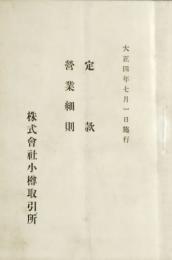 大正四年七月一日施行
定款
營業細則
株式會社小樽取引所